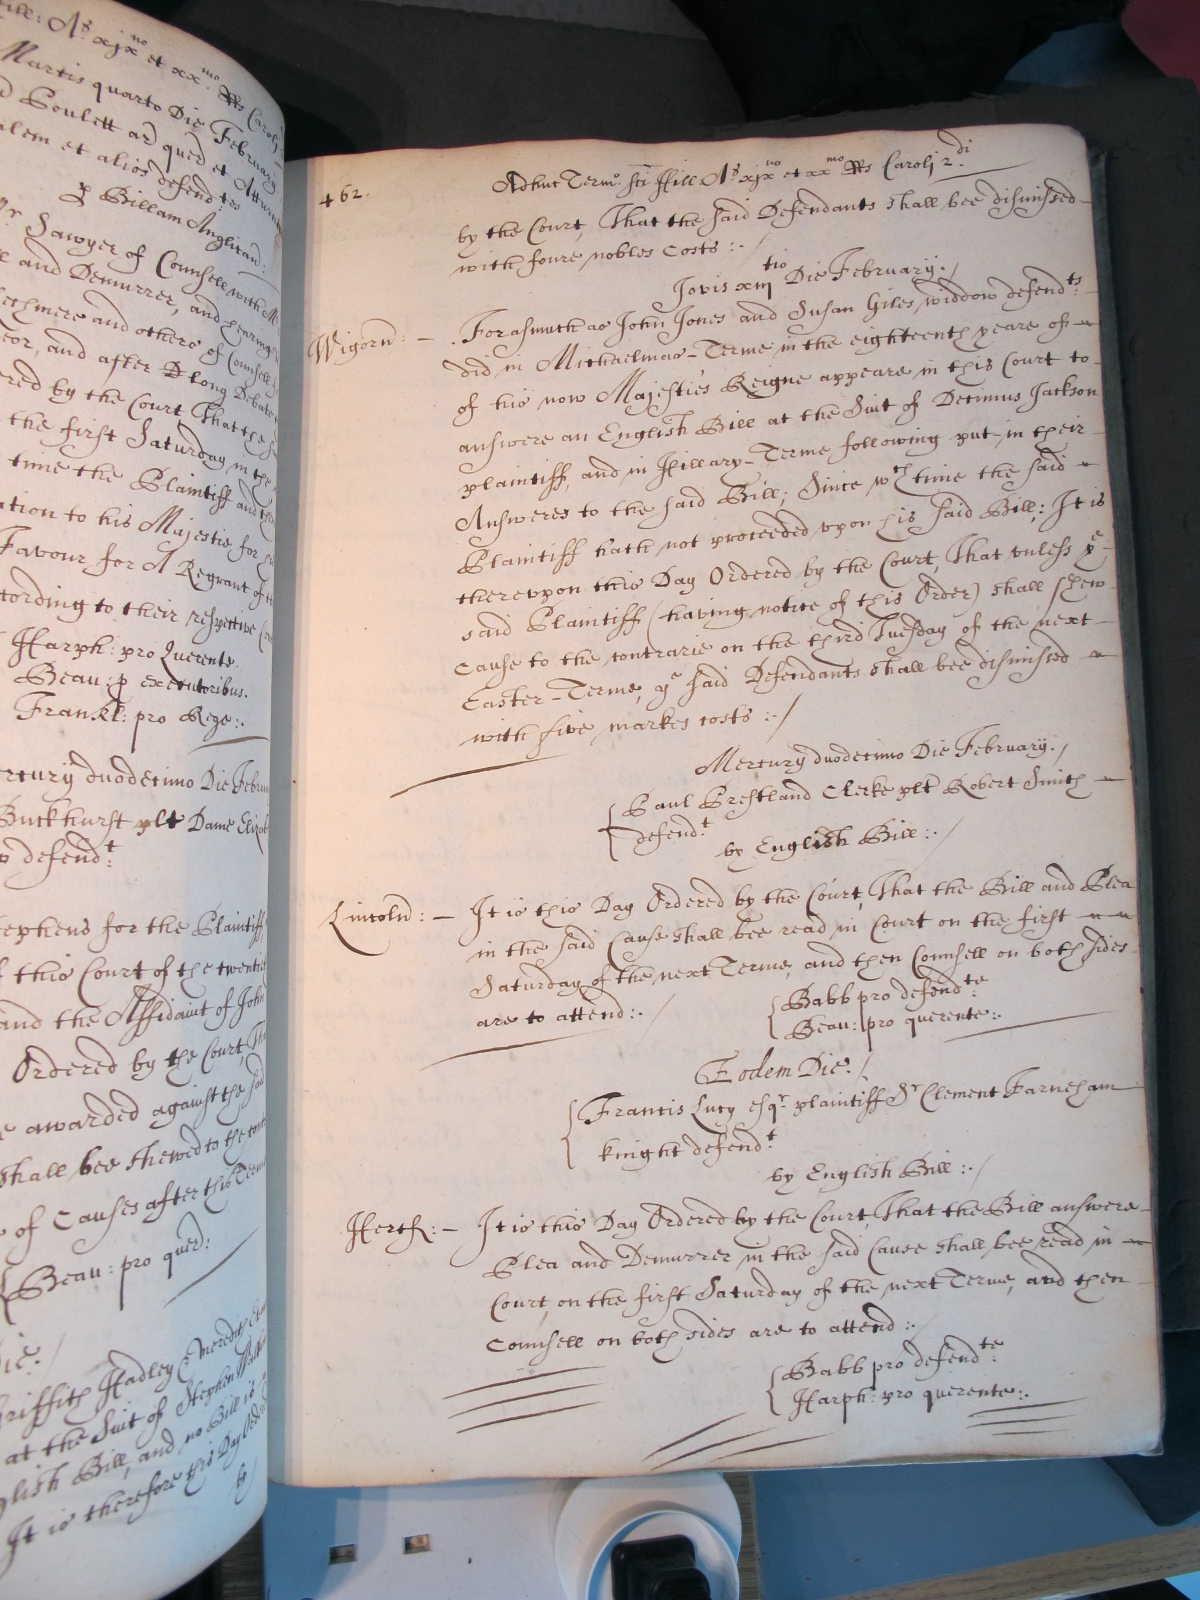 ill: A.º xjx no et xx mo Rs Caroli
Martis quarto Die February
Poulett ar) quer) et Atturn
alem et alios defend:tes
p Billam Anglican:
Sawyer of Counsell with
and Demurrer, and hearing
thmere and others of Counsell
eor, and after A long Debate
ered by the Court That the
the first Saturday in the
time the Plaintiff and the
ation to his Majestie for
Favour for A Regrant of
cording to their respective
Harph: pro Querente.
Beau: p executoribus.
Frankl: pro Rege:.
ercury duodecimo Die Febru
Buckhurst plt Dame Eliza
defend:t
ephens for the Plaintiff
f this Court of the twentie
and the Affidavit of John
Ordered by the Court, Th
e awarded against the said
shall bee shewed to the cont
of Causes after this Terme
Beau: pro quer):
Die:
riffith Hadley Meredith
at the Suit of Stephen
glish Bill, and no Bill is
It is therefore this Day Orde
by
462.
Adhuc Termo. Sci Hill A.º xjx no et xx mo Rs Caroli 2.di
by the Court, That the said Defendants shall bee dismissed
with foure nobles Costs :.
Jovis xiij tio Die February.
Wigorn: - Forasmuch as John Jones and Susan Giles, widdow defend:ts
did in Michaelmas-Terme in the eighteenth yeare of
of his now Majesties Reigne appeare in this Court to
answere an English Bill at the Suit of Decimus Jackson
plaintiff, and in Hillary-Terme following put-in their
Answeres to the said Bill; Since wch time the said
Plaintiff hath not proceeded upon his said Bill; It is
thereupon this Day Ordered by the Court, That unless ye
said Plaintiff (having notice of this Order) shall shew
Cause to the contrarie on the third Tuesday of the next
Easter-Terme, ye said Defendants shall bee dismissed
with five markes costs :.
Mercury duodecimo Die February.
Paul Prestland Clerke plt Robert Smith
defend:t
by English Bill:.
Lincoln: - It is this Day Ordered by the Court, That the Bill and Plea
in the said Cause shall bee read in Court on the first
Saturday of the next Terme, and then Counsell on both sides
are to attend:.
Babb pro defend:te
Beau: pro querente:.
Eodem Die.
Francis Lucy esqr. plaintiff Sr Clement Farneham
knight defend:t
by English Bill:.
Hertf: - It is this Day Ordered by the Court, That the Bill answere
Plea and Demurrer in the said Cause shall bee read in
Court, on the first Saturday of the next Terme, and then
Counsell on both sides are to attend:.
Babb pro defend:te
Harph: pro querente:.